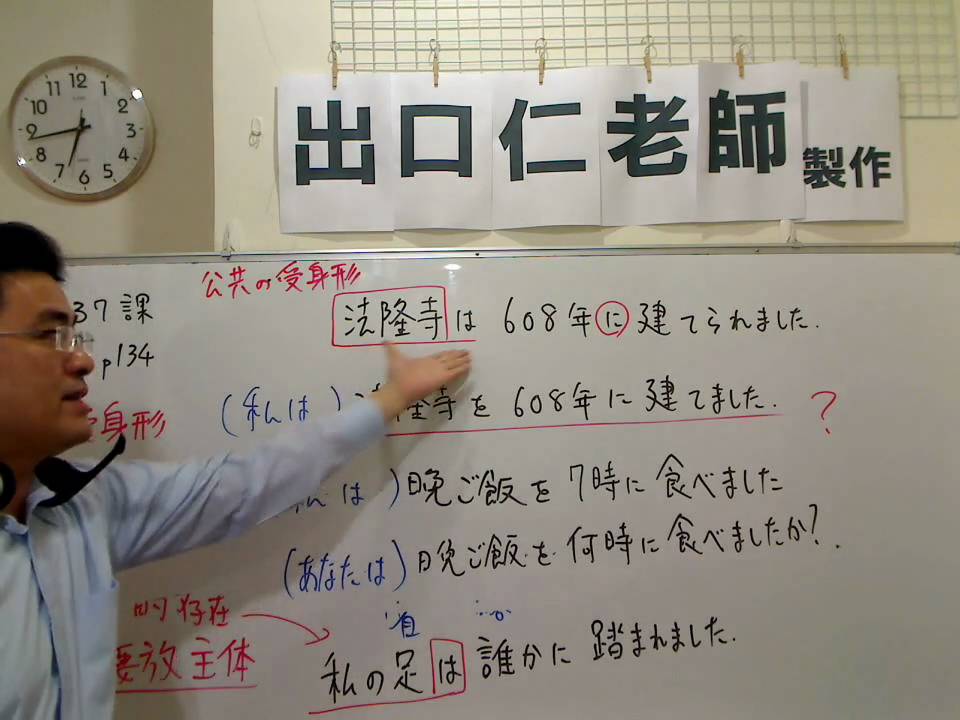 出口仁老師 製作
公共の受身形
37課
法隆寺は 608年に建てられました.
p134
(私は) 隆寺を 608年に建てました. ?
身形
は) 晩ご飯を 7時に食べました
(あなたは) 晩ご飯を 何時に食べましたか?
存在
放主体
私の足は 誰かに 踏まれました.
12
1
2
3
4
5
6
7
8
9
10
11